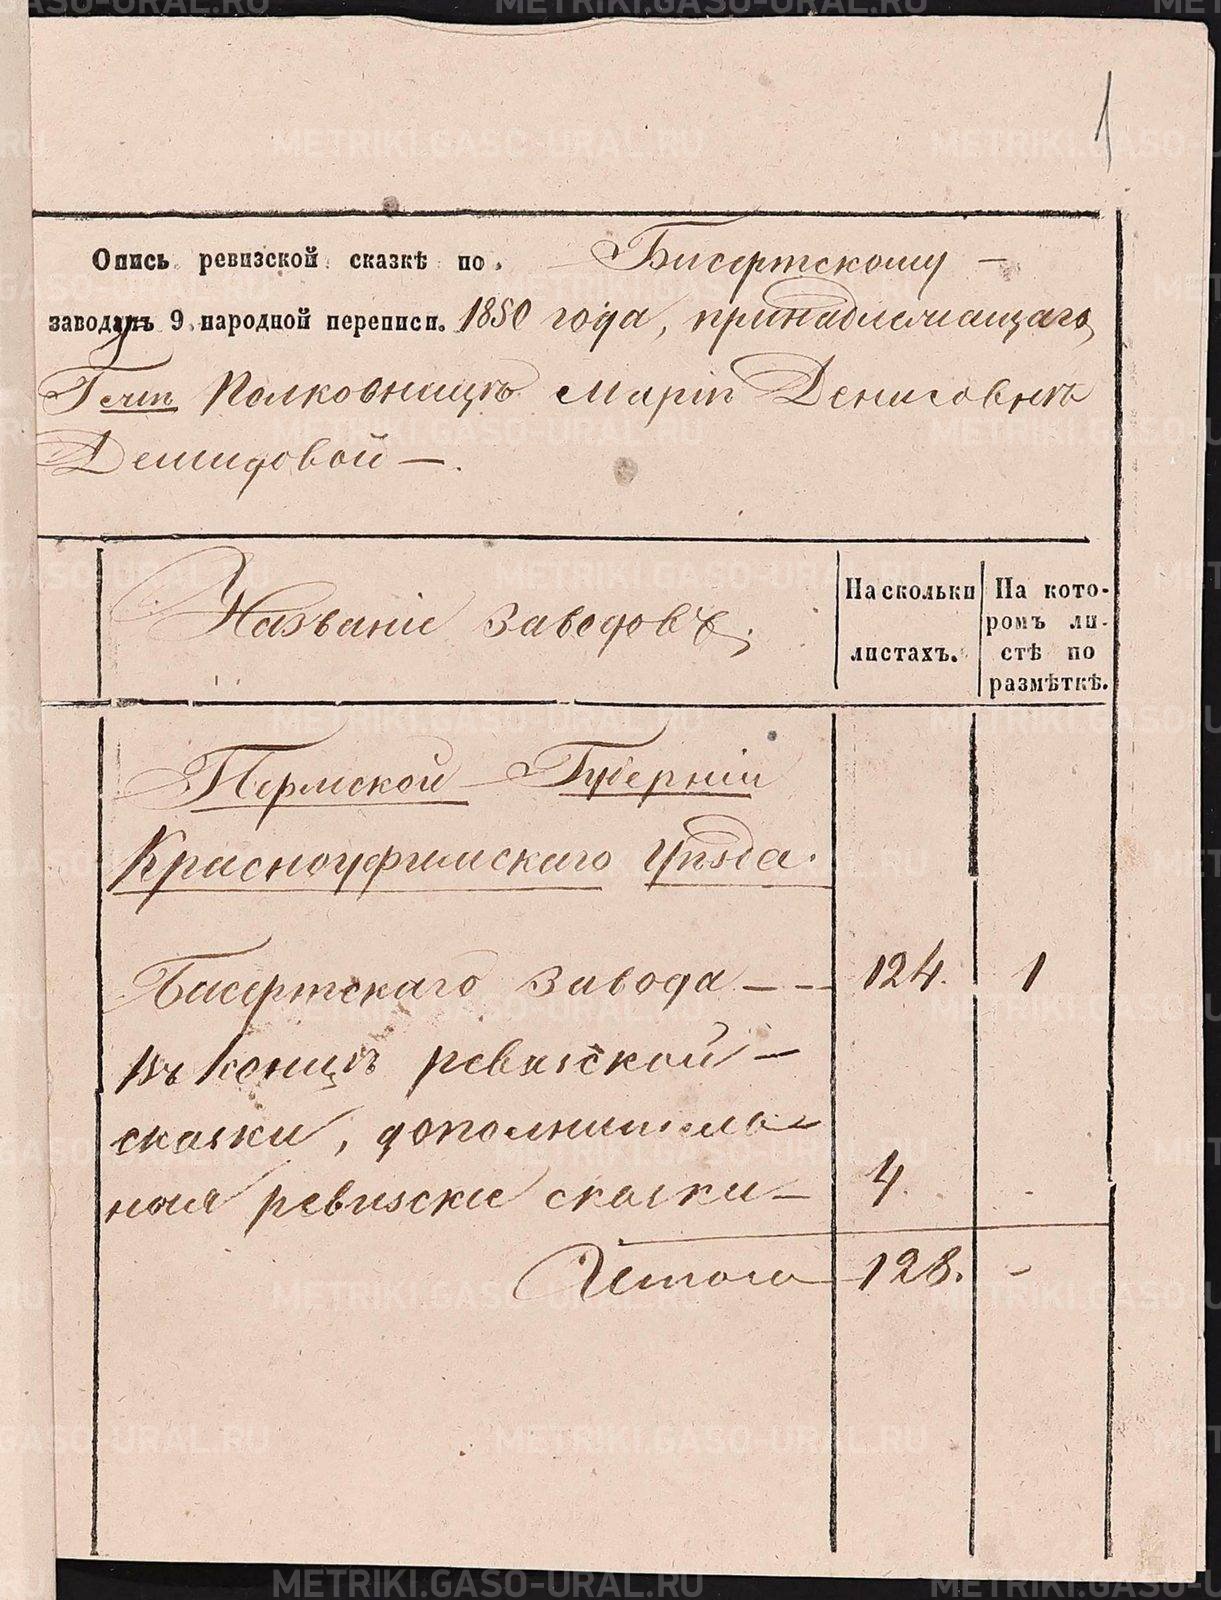 1
Опись ревизской сказкѣ по Бисертскому —
заводу 9 народной переписи. 1850 года, принадлежащаго
Г жѣ Полковницѣ Маріи Денисовнѣ
Демидовой —.
Названіе заводовъ.
На сколькихъ
листахъ.
На кото-
ромъ ли-
стѣ по
размѣткѣ.
Пермской Губерніи
Красноуфимскаго Уѣзда.
Бисертскаго завода — — 124. 1
Въ концѣ ревизской —
сказки, дополнитель-
ная ревизскіе сказки — 4.
Итого 128. -
METRIKI.GASO-URAL.RU